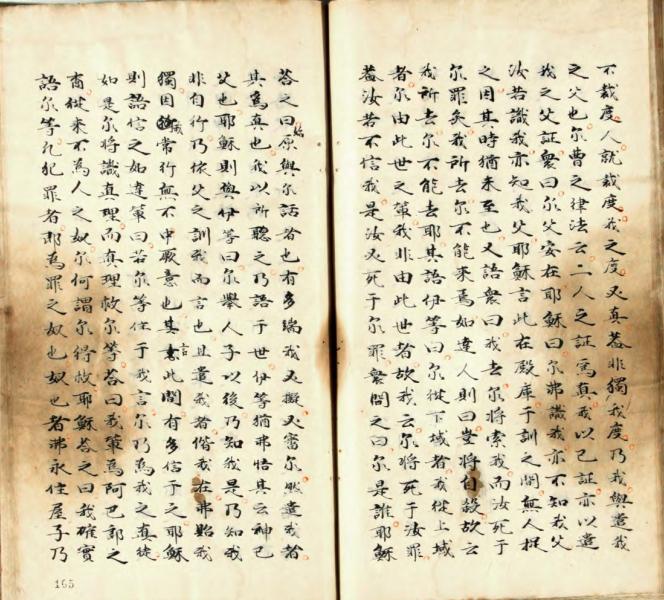 不裁度人就裁度我之度又真盖非獨我度乃我與遣我
之父也尔曹之律法云二人之証為真我以己証亦以遣
我之父証衆曰尔父安在耶穌曰尔弗識我亦不知我父
汝若識我亦知我父耶穌言此在殿庫于訓之間無人捉
之因其時猶未至也又語衆曰我去尔将索我而汝死于
尔罪矣我所去尔不能來焉如達人則曰豈将自殺故云
我所去尔不能去耶其語伊等曰尔從下域者我從上域
者尔由此世之輩我非由此世者故我云尔将死于汝罪
盖汝若不信我是汝又死于尔罪衆問之曰尔是誰耶穌
荅之曰原始與尔話者也有多端我又擬又審尔然遣我者
其為真也我以所聴之乃語于世伊等猶弗悟其云神己
父也耶穌則與伊等曰尔舉人子以後乃知我是乃知我
非自行乃依父之訓我而言也且遣我者偕我在弗貽我
獨因我常行無不中厥意也其言此間有多信于之耶穌
則語信之如達輩曰若尔等住于我言尔乃為我之真徒
如是尔将識真理而真理救尔等荅曰我輩為阿巴郎之
裔從來不為人之奴尔何謂尔得救耶穌荅之曰我確實
語尔等凡犯罪者即為罪之奴也奴也者弗永住屋子乃
165